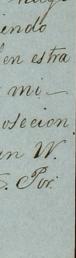 iendo
en estra
mi-
osecion
en W.
S. Por